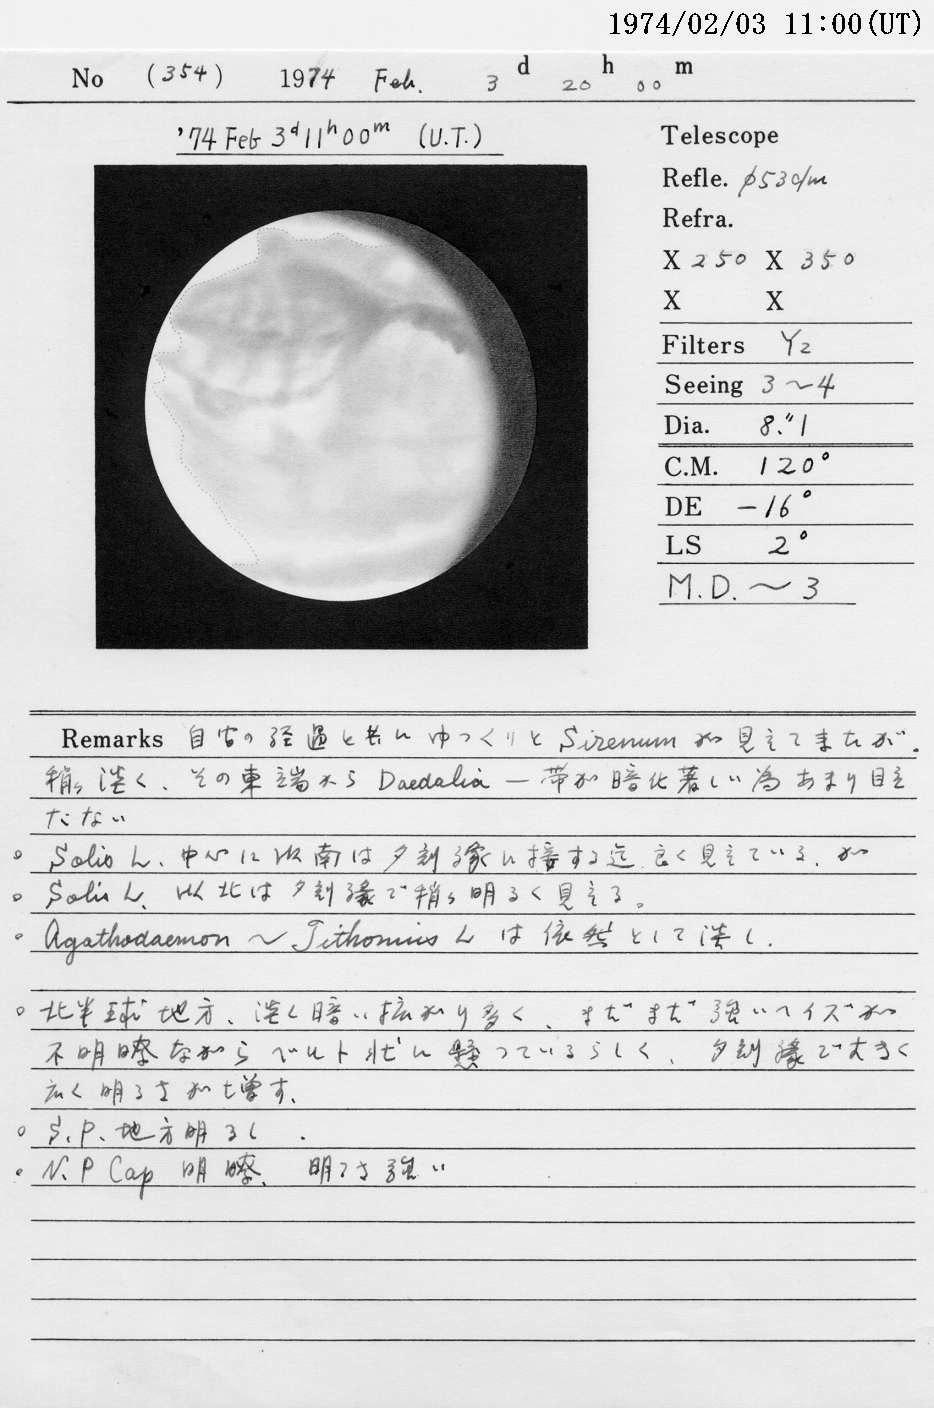 1974/02/03 11:00(UT)
No (354) 1974 Feb. 3 d 20 h 00 m
'74 Feb 3d 11h 00m (U.T.)
Telescope
Refle. φ53c/m
Refra.
X 250 X 350
X X
Filters Y2
Seeing 3~4
Dia. 8."1
C.M. 120°
DE -16°
LS 2°
M.D. ~ 3
Remarks 自古の経過と共にゆっくりと Sirenum が見えてきたが、
稍々淡く、その東端から Daedalia 一帯が暗化著しい為あまり目立
たない
。 Solis L. 中心に以南は夕刻縁に接する迄良く見えている、が
。 Solis L. 以北は夕刻縁で稍々明るく見える。
。 Agathodaemon ~ Tithonius L は依然として淡し.
。 北半球地方、淡く暗い拡がり多く、まだまだ強いヘイズが
不明瞭ながらベルト状に懸っているらしく、夕刻縁で大きく
広く明るさが増す.
。 S.P. 地方明るし.
。 N.P Cap 明瞭、明るさ強い